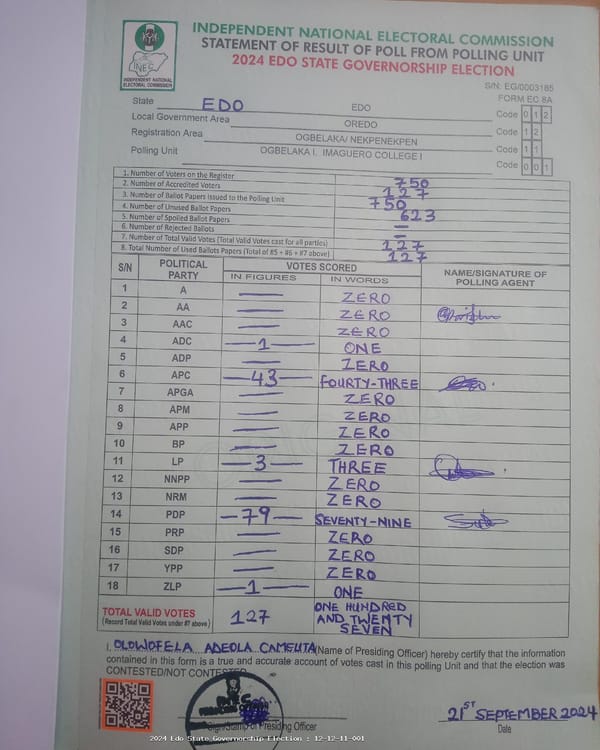 INDEPENDENT NATIONAL ELECTORAL COMMISSION
STATEMENT OF RESULT OF POLL FROM POLLING UNIT
2024 EDO STATE GOVERNORSHIP ELECTION
INEC
INDEPENDENT NATIONAL ELECTORAL COMMISSION
S/N: EG/0003185
FORM EC 8A
State EDO EDO Code 0 1 2
Local Government Area OREDO Code 1 2
Registration Area OGBELAKA/ NEKPENEKPEN Code 1 1
Polling Unit OGBELAKA I. IMAGUERO COLLEGE I Code 0 0 1
1. Number of Voters on the Register 750
2. Number of Accredited Voters 127
3. Number of Ballot Papers Issued to the Polling Unit 750
4. Number of Unused Ballot Papers 623
5. Number of Spoiled Ballot Papers —
6. Number of Rejected Ballots —
7. Number of Total Valid Votes (Total Valid Votes cast for all parties) 127
8. Total Number of Used Ballots Papers (Total of #5 + #6 + #7 above) 127
S/N POLITICAL PARTY VOTES SCORED NAME/SIGNATURE OF POLLING AGENT
IN FIGURES IN WORDS
1 A — ZERO
2 AA — ZERO
3 AAC — ZERO
4 ADC —1— ONE
5 ADP — ZERO
6 APC —43— FOURTY-THREE
7 APGA — ZERO
8 APM — ZERO
9 APP — ZERO
10 BP — ZERO
11 LP —3— THREE
12 NNPP — ZERO
13 NRM — ZERO
14 PDP —79— SEVENTY-NINE
15 PRP — ZERO
16 SDP — ZERO
17 YPP — ZERO
18 ZLP —1— ONE
TOTAL VALID VOTES 127 ONE HUNDRED AND TWENTY SEVEN
(Record Total Valid Votes under #7 above)
I, OLOWOFELA ADEOLA CAMELITA (Name of Presiding Officer) hereby certify that the information
contained in this form is a true and accurate account of votes cast in this polling Unit and that the election was
CONTESTED/NOT CONTESTED
Sign/Stamp of Presiding Officer
21ST SEPTEMBER 2024
Date
2024 Edo State Governorship Election : 12-12-11-001